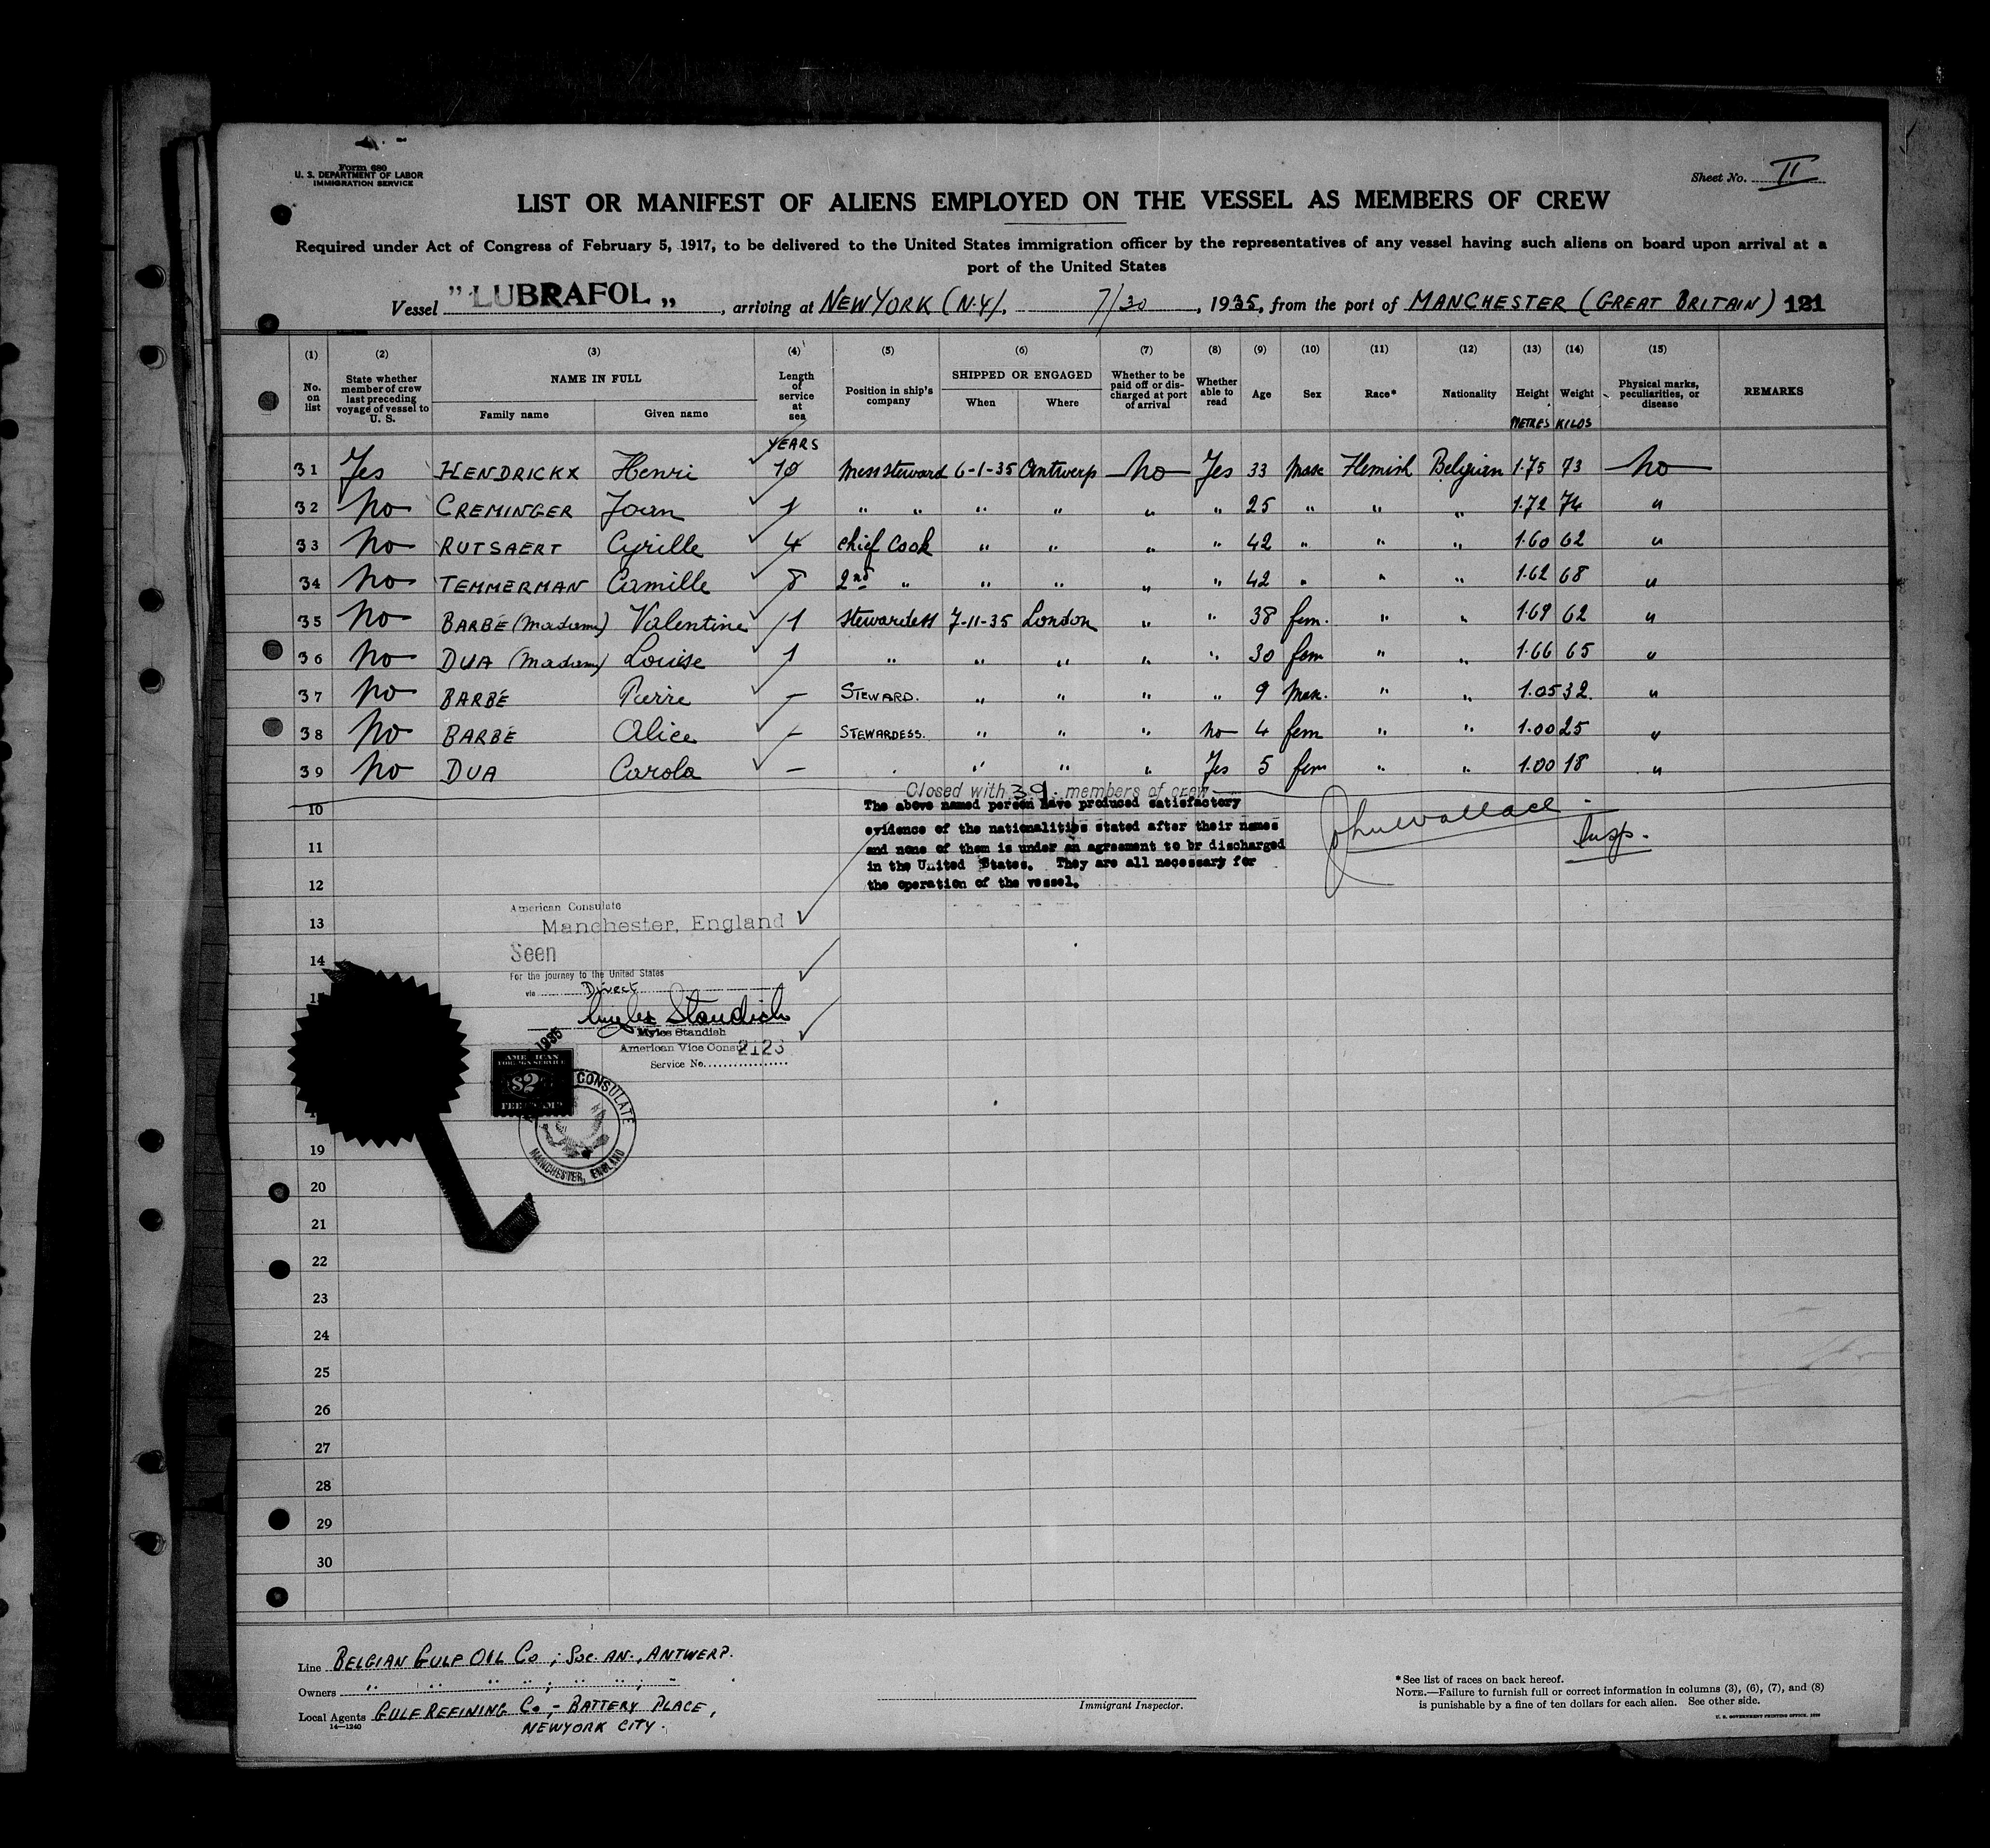 Form 680
U. S. DEPARTMENT OF LABOR
IMMIGRATION SERVICE
Sheet No. II
LIST OR MANIFEST OF ALIENS EMPLOYED ON THE VESSEL AS MEMBERS OF CREW
Required under Act of Congress of February 5, 1917, to be delivered to the United States immigration officer by the representatives of any vessel having such aliens on board upon arrival at a
port of the United States
Vessel "LUBRAFOL„, arriving at NEW YORK (N.Y)., 7/30, 1935, from the port of MANCHESTER (GREAT BRITAIN) 121
(1) (2) (3) (4) (5) (6) (7) (8) (9) (10) (11) (12) (13) (14) (15)
No. on list State whether member of crew last preceding voyage of vessel to U. S. NAME IN FULL Family name Given name Length of service at sea Position in ship's company SHIPPED OR ENGAGED When Where Whether to be paid off or discharged at port of arrival Whether able to read Age Sex Race* Nationality Height Weight Physical marks, peculiarities, or disease REMARKS
YEARS METRES KILOS
31 Yes HENDRICKX Henri 10 Mess steward 6-1-35 Antwerp No Yes 33 Mas Flemish Belgian 1.75 73 No
32 No CREMINGER Jean 1 " " " " " " 25 " " " 1.72 74 "
33 No RUTSAERT Cyrille 4 chief Cook " " " " 42 " " " 1.60 62 "
34 No TEMMERMAN Camille 8 2nd " " " " " 42 " " " 1.62 68 "
35 No BARBÉ (Madame) Valentine 1 stewardess 7-11-35 London " " 38 fem. " " 1.69 62 "
36 No DUA (Madame) Louise 1 " " " " " 30 fem " " 1.66 65 "
37 No BARBÉ Pierre — STEWARD. " " " " 9 Mas. " " 1.05 32. "
38 No BARBÉ Alice — STEWARDESS. " " " No 4 fem " " 1.00 25 "
39 No DUA Carola — . " " " Yes 5 fem " " 1.00 18 "
Closed with 39. members of crew
10 The above named person have produced satisfactory
evidence of the nationalities stated after their names
John Wallace Insp.
11 and none of them is under an agreement to br discharged
in the United States. They are all necessary for
12 the operation of the vessel.
American Consulate
13 Manchester, England
Seen
14
For the journey to the United States
via Direct
Myles Standish
Myles Standish
American Vice Consul
2123
Service No.
1935
AMERICAN
FOREIGN SERVICE
$2
FEE STAMP
CONSULATE
MANCHESTER, ENGLAND
19
20
21
22
23
24
25
26
27
28
29
30
Line BELGIAN GULF OIL Co ; Soc. AN., ANTWERP.
Owners " " " " ; " " ; "
Local Agents GULF REFINING Co, - BATTERY PLACE,
14—1240
NEWYORK CITY.
Immigrant Inspector.
* See list of races on back hereof.
NOTE.—Failure to furnish full or correct information in columns (3), (6), (7), and (8)
is punishable by a fine of ten dollars for each alien. See other side.